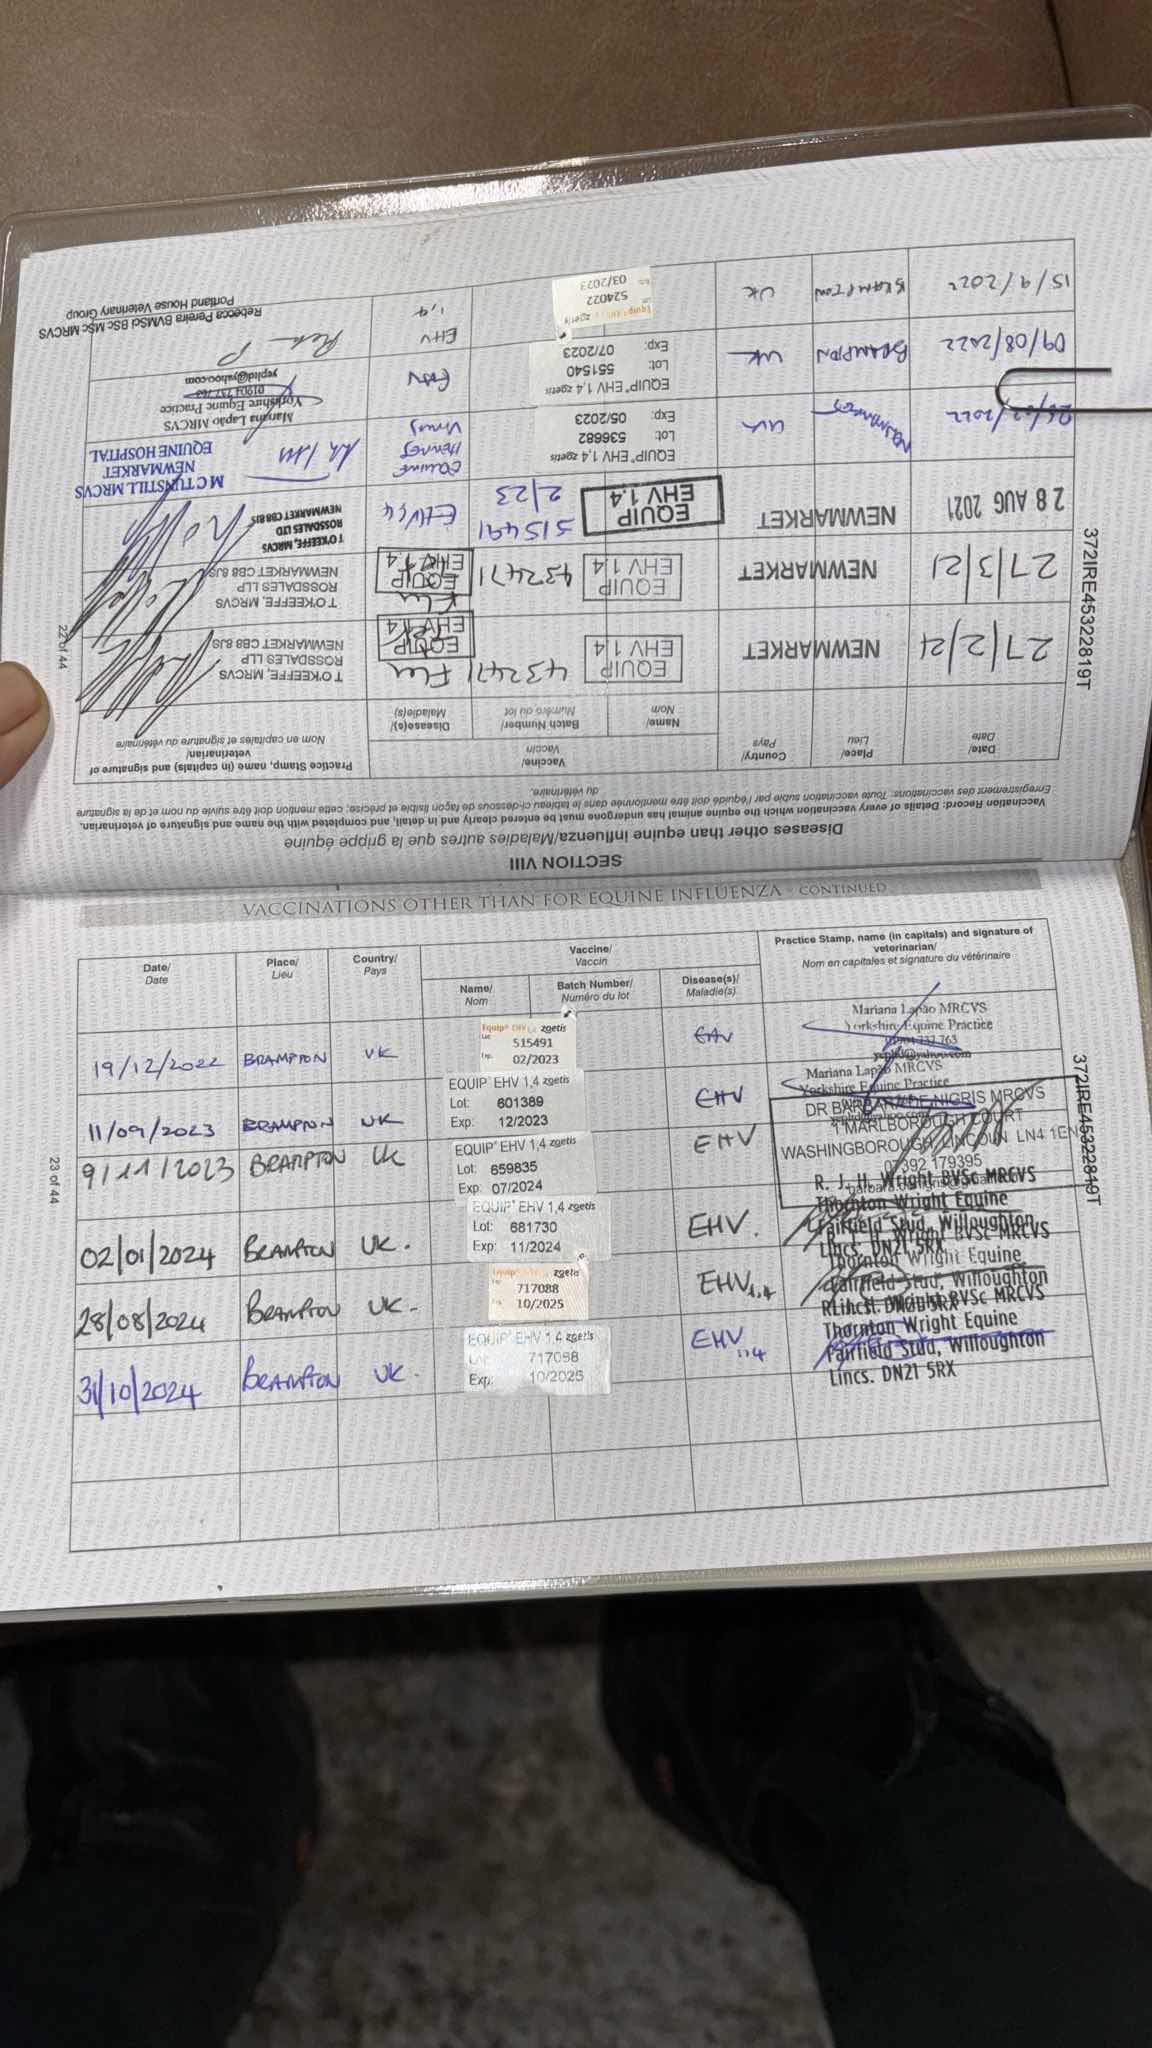 SECTION VIII
Diseases other than equine influenza/Maladies autres que la grippe équine
Vaccination Record: Details of every vaccination which the equine animal has undergone must be entered clearly and in detail, and completed with the name and signature of veterinarian.
Enregistrement des vaccinations: Toute vaccination subie par l'équidé doit être mentionnée dans le tableau ci-dessous de façon lisible et précise; cette mention doit être suivie du nom et de la signature
du vétérinaire.
Date/ Place/ Country/ Vaccine/ Practice Stamp, name (in capitals) and signature of
Date Lieu Pays Vaccin veterinarian/
Name/ Batch Number/ Disease(s)/ Nom en capitales et signature du vétérinaire
Nom Numéro du lot Maladie(s)
27/2/21 NEWMARKET EQUIP EHV 1.4 432471 Flu EQUIP EHV 1.4 T O'KEEFFE, MRCVS
ROSSDALES LLP
NEWMARKET CB8 8JS
27/3/21 NEWMARKET EQUIP EHV 1.4 432471 EQUIP EHV 1.4 T O'KEEFFE, MRCVS
ROSSDALES LLP
NEWMARKET CB8 8JS
28 AUG 2021 NEWMARKET EQUIP EHV 1,4 515491 2/23 EHV1,4 T O'KEEFFE, MRCVS
ROSSDALES LTD
NEWMARKET CB8 8JS
/2022 NEWMARKET UK EQUIP® EHV 1,4 zoetis Lot: 536682 Exp: 05/2023 EQUINE HERPES VIRUS M C TUNSTILL MRCVS
NEWMARKET
EQUINE HOSPITAL
09/08/2022 BRAMPTON UK EQUIP® EHV 1,4 zoetis Lot: 551540 Exp: 07/2023 EHV Mariana Lapão MRCVS
Yorkshire Equine Practice
01904 737 763
yepltd@yahoo.com
15/9/2022 BRAMPTON UK Equip® EHV 1,4 zoetis 524022 03/2023 EHV 1,4 Rebecca Pereira BVMSci BSc MSc MRCVS
Portland House Veterinary Group
372IRE45322819T
22 of 44
VACCINATIONS OTHER THAN FOR EQUINE INFLUENZA - CONTINUED
Date/ Place/ Country/ Vaccine/ Practice Stamp, name (in capitals) and signature of
Date Lieu Pays Vaccin veterinarian/
Name/ Batch Number/ Disease(s)/ Nom en capitales et signature du vétérinaire
Nom Numéro du lot Maladie(s)
19/12/2022 BRAMPTON UK Equip® EHV 1,4 zoetis Lot: 515491 Exp. 02/2023 EHV Mariana Lapão MRCVS
Yorkshire Equine Practice
01904 737 763
yepltd@yahoo.com
11/09/2023 BRAMPTON UK EQUIP® EHV 1,4 zoetis Lot: 601389 Exp: 12/2023 EHV Mariana Lapão MRCVS
Yorkshire Equine Practice
9/11/2023 BRAMPTON UK EQUIP® EHV 1,4 zoetis Lot: 659835 Exp: 07/2024 EHV DR BARBARA DE NIGRIS MRCVS
1 MARLBOROUGH COURT
WASHINGBOROUGH, LINCOLN LN4 1EN
07392 179395
02/01/2024 BRAMPTON UK. EQUIP® EHV 1,4 zoetis Lot: 681730 Exp: 11/2024 EHV. R. J. H. Wright BVSc MRCVS
Thornton Wright Equine
Fairfield Stud, Willoughton
Lincs. DN21 5RX
28/08/2024 BRAMPTON UK. Equip® zoetis 717088 10/2025 EHV1,4 R. J. H. Wright BVSc MRCVS
Thornton Wright Equine
Fairfield Stud, Willoughton
Lincs. DN21 5RX
31/10/2024 BRAMPTON UK. EQUIP® EHV 1,4 zoetis Lot: 717088 Exp: 10/2025 EHV1,4 R. J. H. Wright BVSc MRCVS
Thornton Wright Equine
Fairfield Stud, Willoughton
Lincs. DN21 5RX
372IRE45322819T
23 of 44